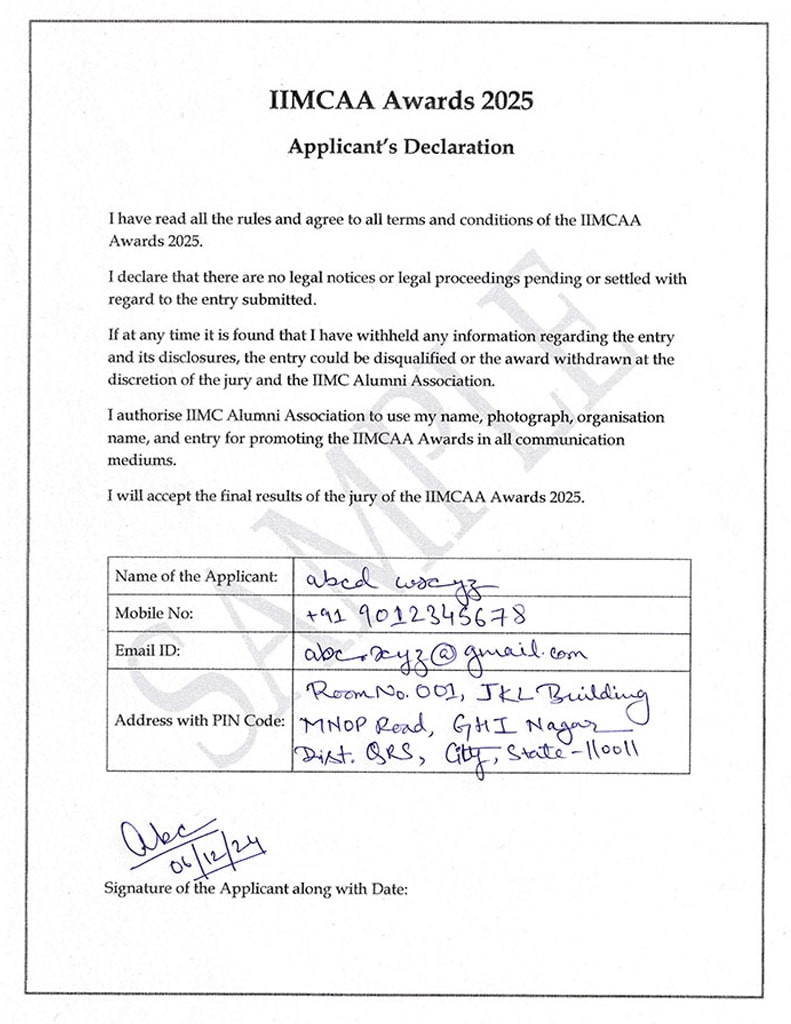 IIMCAA Awards 2025
Applicant's Declaration
I have read all the rules and agree to all terms and conditions of the IIMCAA
Awards 2025.
I declare that there are no legal notices or legal proceedings pending or settled with
regard to the entry submitted.
If at any time it is found that I have withheld any information regarding the entry
and its disclosures, the entry could be disqualified or the award withdrawn at the
discretion of the jury and the IIMC Alumni Association.
I authorise IIMC Alumni Association to use my name, photograph, organisation
name, and entry for promoting the IIMCAA Awards in all communication
mediums.
I will accept the final results of the jury of the IIMCAA Awards 2025.
SAMPLE
Name of the Applicant: abcd wxyz
Mobile No: +91 9012345678
Email ID: abc.xyz@gmail.com
Address with PIN Code: Room No. 001, JKL Building
MNOP Road, GHI Nagar
Dist. QRS, City, State-110011
Abc
06/12/24
Signature of the Applicant along with Date: